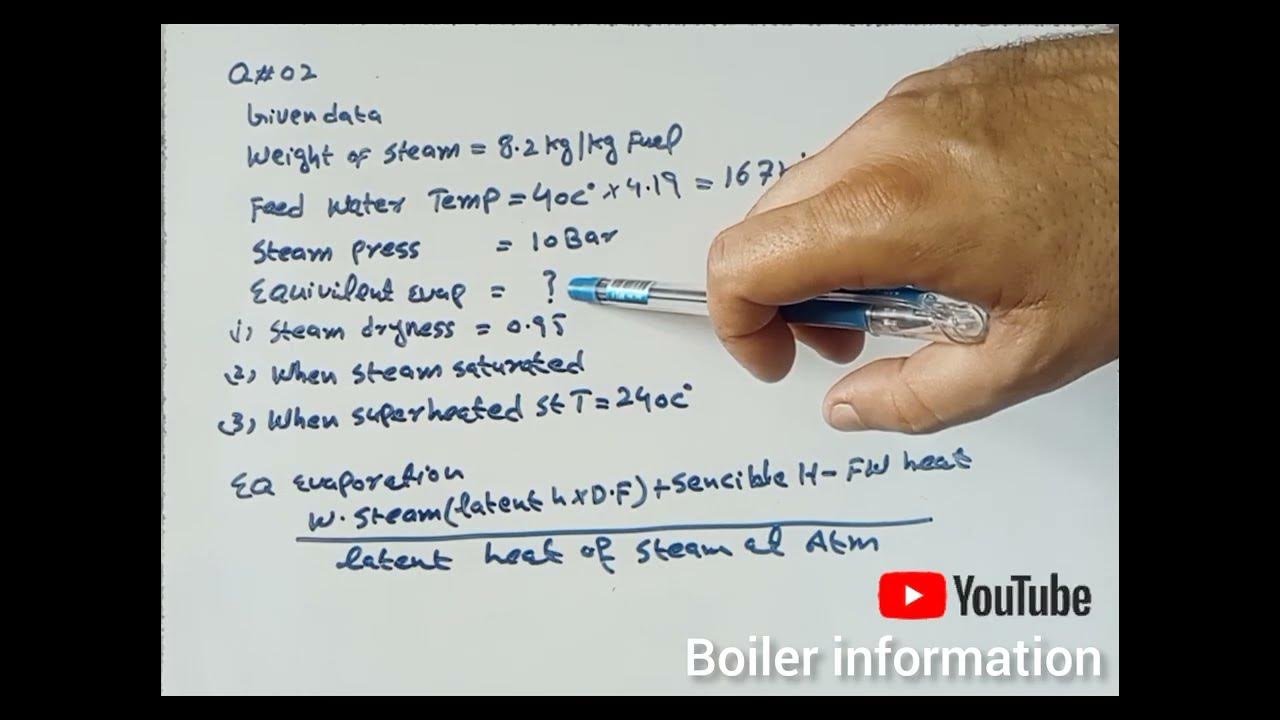 Q#02
Given data
Weight of steam = 8.2 kg/kg Fuel
Feed Water Temp = 40c° x 4.19 = 167
Steam press = 10 Bar
Equivilent evap = ?
1) Steam dryness = 0.95
2) When steam saturated
3) When superheated st T = 240c°
EQ Evaporation
W. Steam (latent h x D.F) + Sencible H - FW heat
latent heat of steam at Atm
YouTube
Boiler information